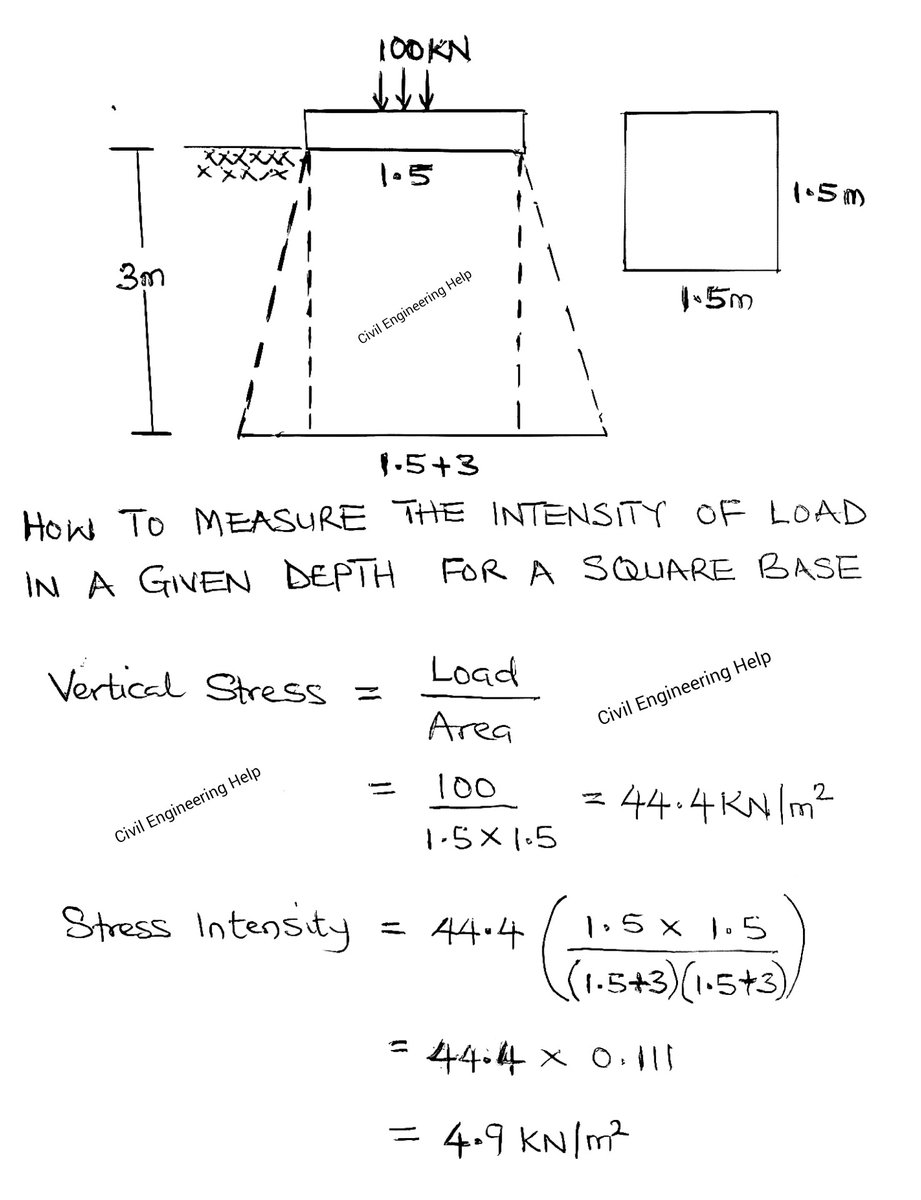 100KN
1.5
3m
1.5m
1.5m
Civil Engineering Help
1.5+3
HOW TO MEASURE THE INTENSITY OF LOAD
IN A GIVEN DEPTH FOR A SQUARE BASE
Vertical Stress = Load / Area
Civil Engineering Help
= 100 / 1.5 × 1.5 = 44.4 KN/m²
Civil Engineering Help
Stress Intensity = 44.4 ( 1.5 × 1.5 / (1.5+3)(1.5+3) )
= 44.4 × 0.111
= 4.9 KN/m²